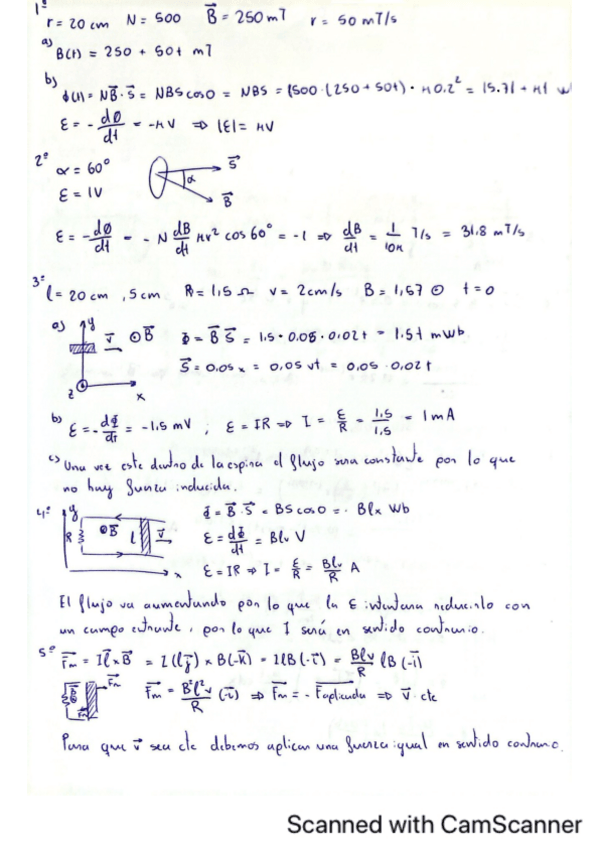 1º
r = 20 cm N = 500 B = 250 mT r = 50 mT/s
a)
B(t) = 250 + 50t mT
b)
ϕ(t) = NB·S = NBScos0 = NBS = (500·(250+50t)·π0.2² = 15.71 + πt W
ε = -dØ/dt = -π V ⇒ |ε| = π V
2º
α = 60º
ε = 1V
S
α
B
ε = -dØ/dt = -N dB/dt πr² cos 60º = -1 ⇒ dB/dt = 1/10π T/s = 31.8 mT/s
3º
l = 20 cm, 5 cm R = 1,5 Ω v = 2cm/s B = 1,5T ⊙ t = 0
a) y v ⊙B Φ = B S = 1.5·0.05·0.02t = 1.5t mWb
z x S = 0.05x = 0,05 vt = 0.05·0.02t
b)
ε = -dΦ/dt = -1,5 mV ; ε = IR ⇒ I = ε/R = 1,5/1,5 = 1mA
c) Una vez este dentro de la espira el flujo sera constante por lo que
no hay fuerza inducida.
4º y R ⊙B l v x
Φ = B·S = BS cos0 = Blx Wb
ε = dΦ/dt = Blv V
ε = IR ⇒ I = ε/R = Blv/R A
El flujo va aumentando por lo que la ε intentara reducirlo con
un campo entrante, por lo que I será en sentido contrario.
5º Fm = Il×B = I(lj) × B(-k) = IlB(-i) = Blv/R lB(-i)
Fm
Fm = B²l²v/R (-i) ⇒ Fm = -Faplicada ⇒ v cte
Para que v sea cte debemos aplicar una fuerza igual en sentido contrario.
Scanned with CamScanner